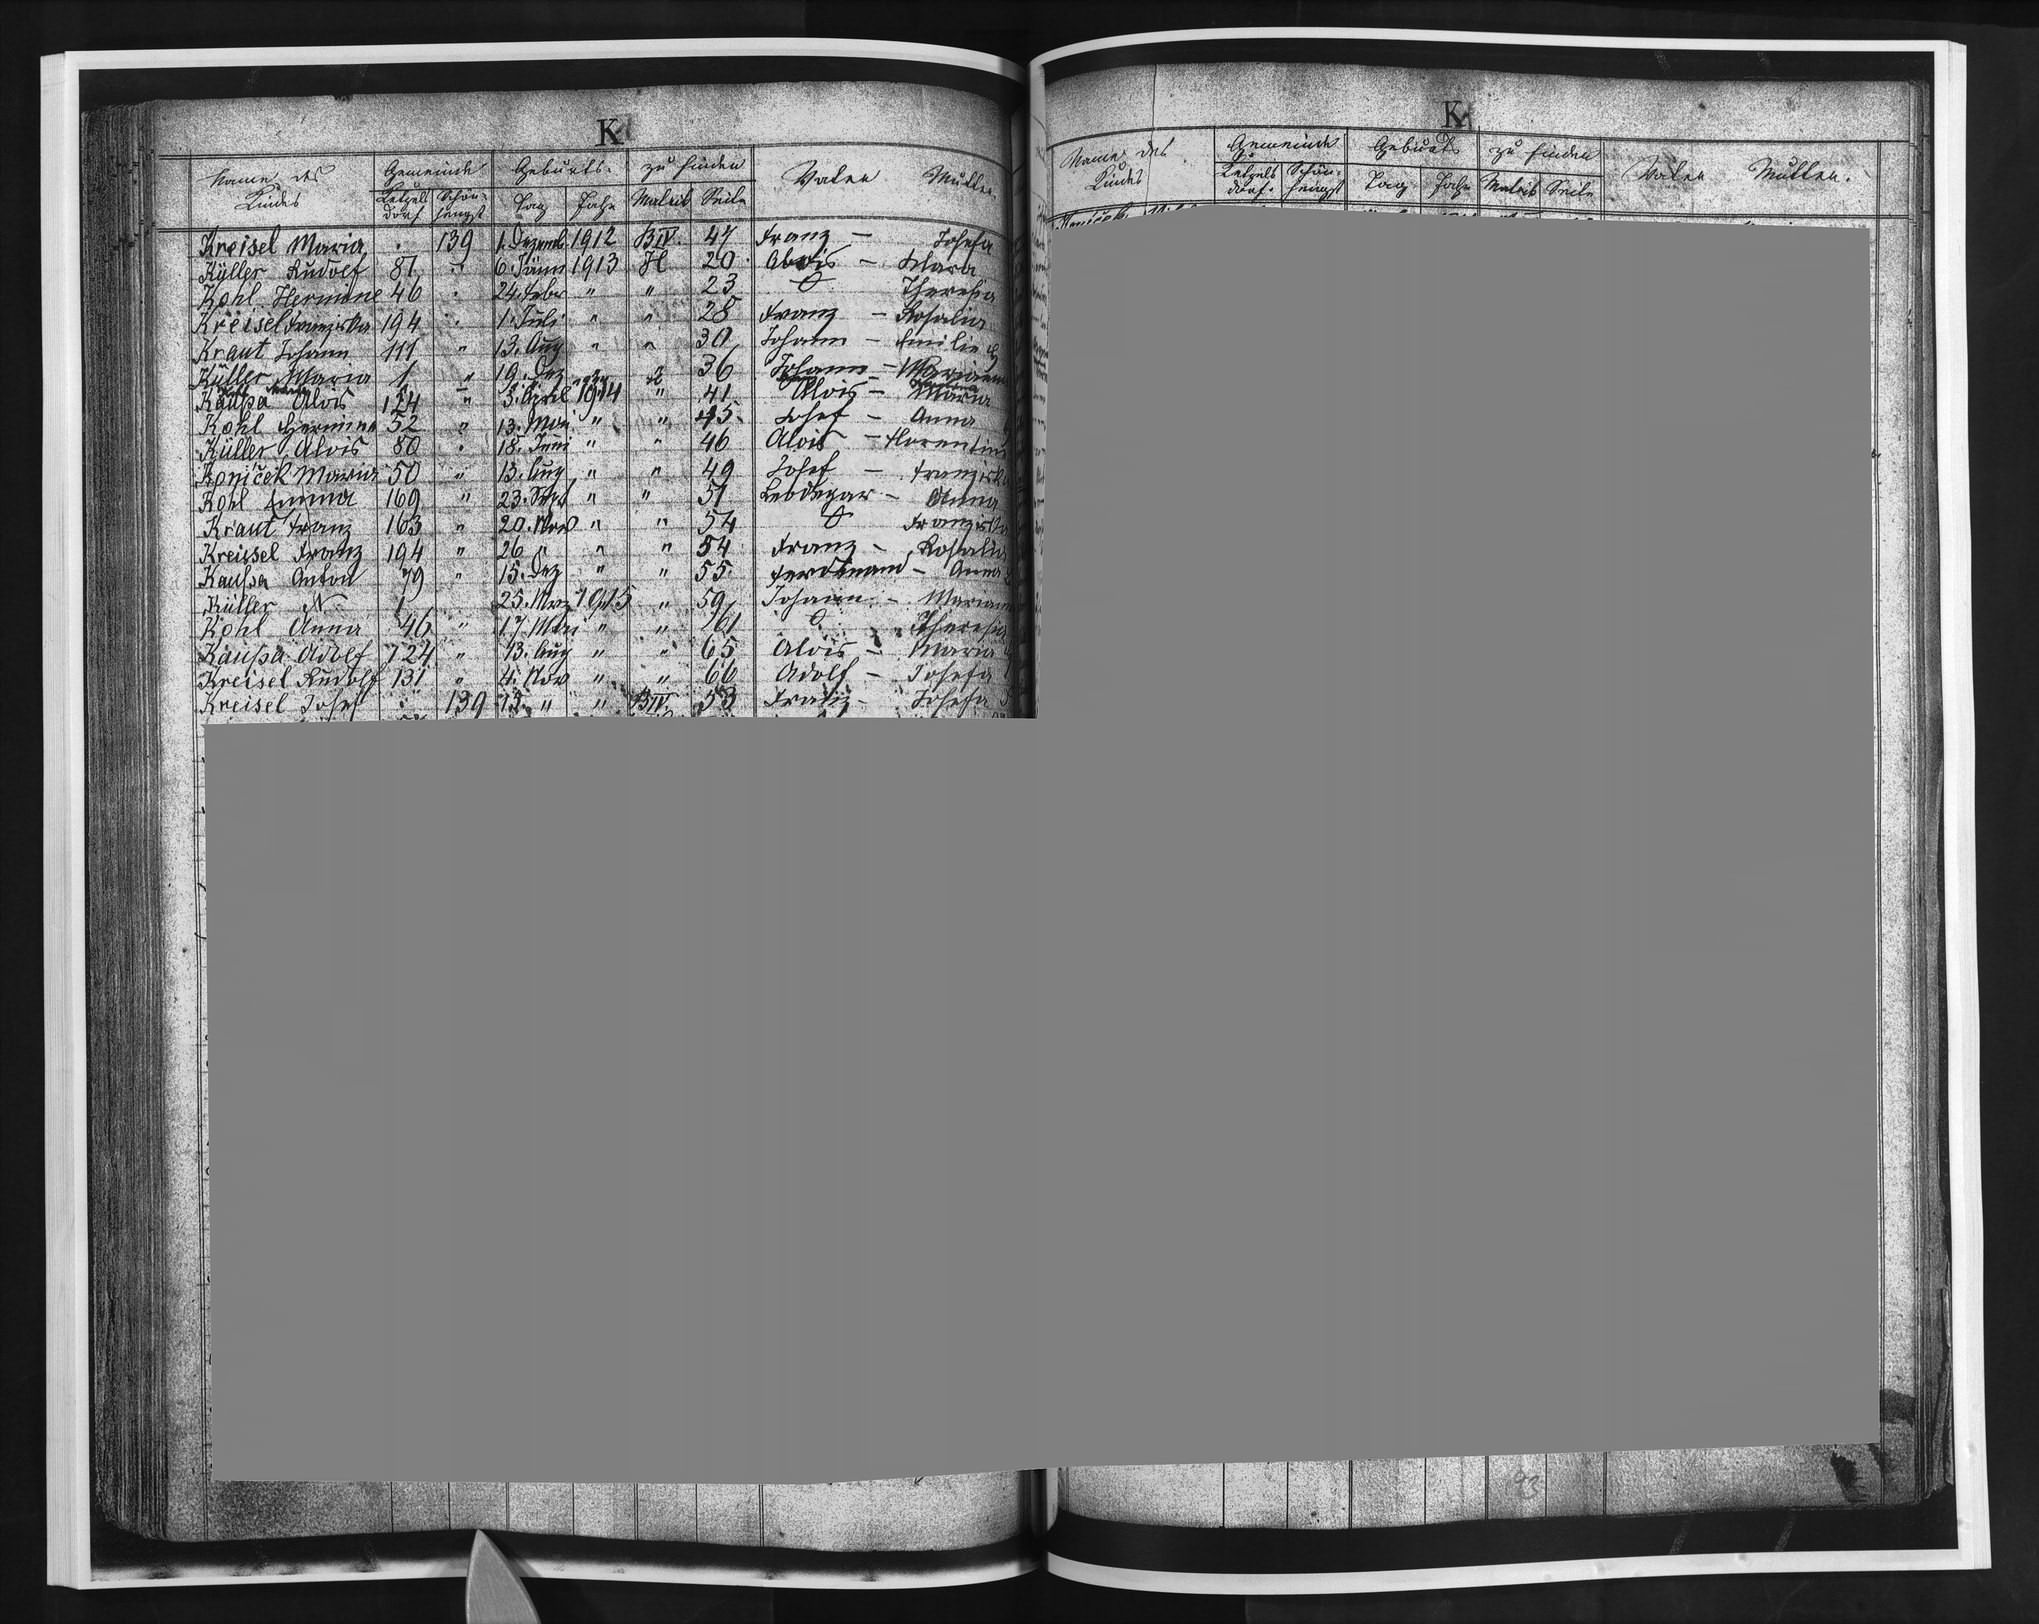 K
Name des Kindes Gemeinde Geburts- zu finden Vater Mutter
Ketzels dorf Schön- hengst Tag Jahr Matrik Seite
Kreisel Maria . 139 1. Dezemb. 1912 B IV. 47 Franz – Josefa
Küller Rudolf 87 " 6. Jänn 1913 H 20 Alois – Maria
Kohl Hermine 46 " 24. Feber " " 23 O Theresia
Kreisel Franziska 194 " 1. Juli " " 28 Franz – Rosalia
Kraut Johann 111 " 13. Aug " " 30 Johann – Emilie
Küller Maria 1 " 19. Dez " " 36 Johann – Mariann
Kaupa Alois 124 " 3. April 1914 " 41 Alois – Maria
Kohl Hermine 52 " 13. Mai " " 45 Josef – Anna
Küller Alois 80 " 18. Juni " " 46 Alois – Florentine
Koníček Maria 50 " 13. Aug " " 49 Josef – Franziska
Kohl Emma 169 " 23. Sept " " 51 Leodegar – Anna
Kraut Franz 163 " 20. Nov " " 54 O Franziska
Kreissel Franz 194 " 26 " " " 54 Franz – Rosalia
Kaupa Anton 79 " 15. Dez " " 55 Ferdinand – Anna
Küller N 1 25. Mrz 1915 " 59 Johann – Mariann
Kohl Anna 46 " 17. Mai " " 61 O Theresia
Kaupa Adolf 124 " 13. Aug " " 65 Alois – Maria
Kreisel Rudolf 131 " 4. Nov " " 66 Adolf – Josefa
Kreisel Josef . 139 13. " " B IV. 53 Franz – Josefa
K
Name des Kindes Gemeinde Geburts zu finden Vater Mutter.
Ketzels dorf. Schön- hengst Tag Jahr Matrik Seite
93